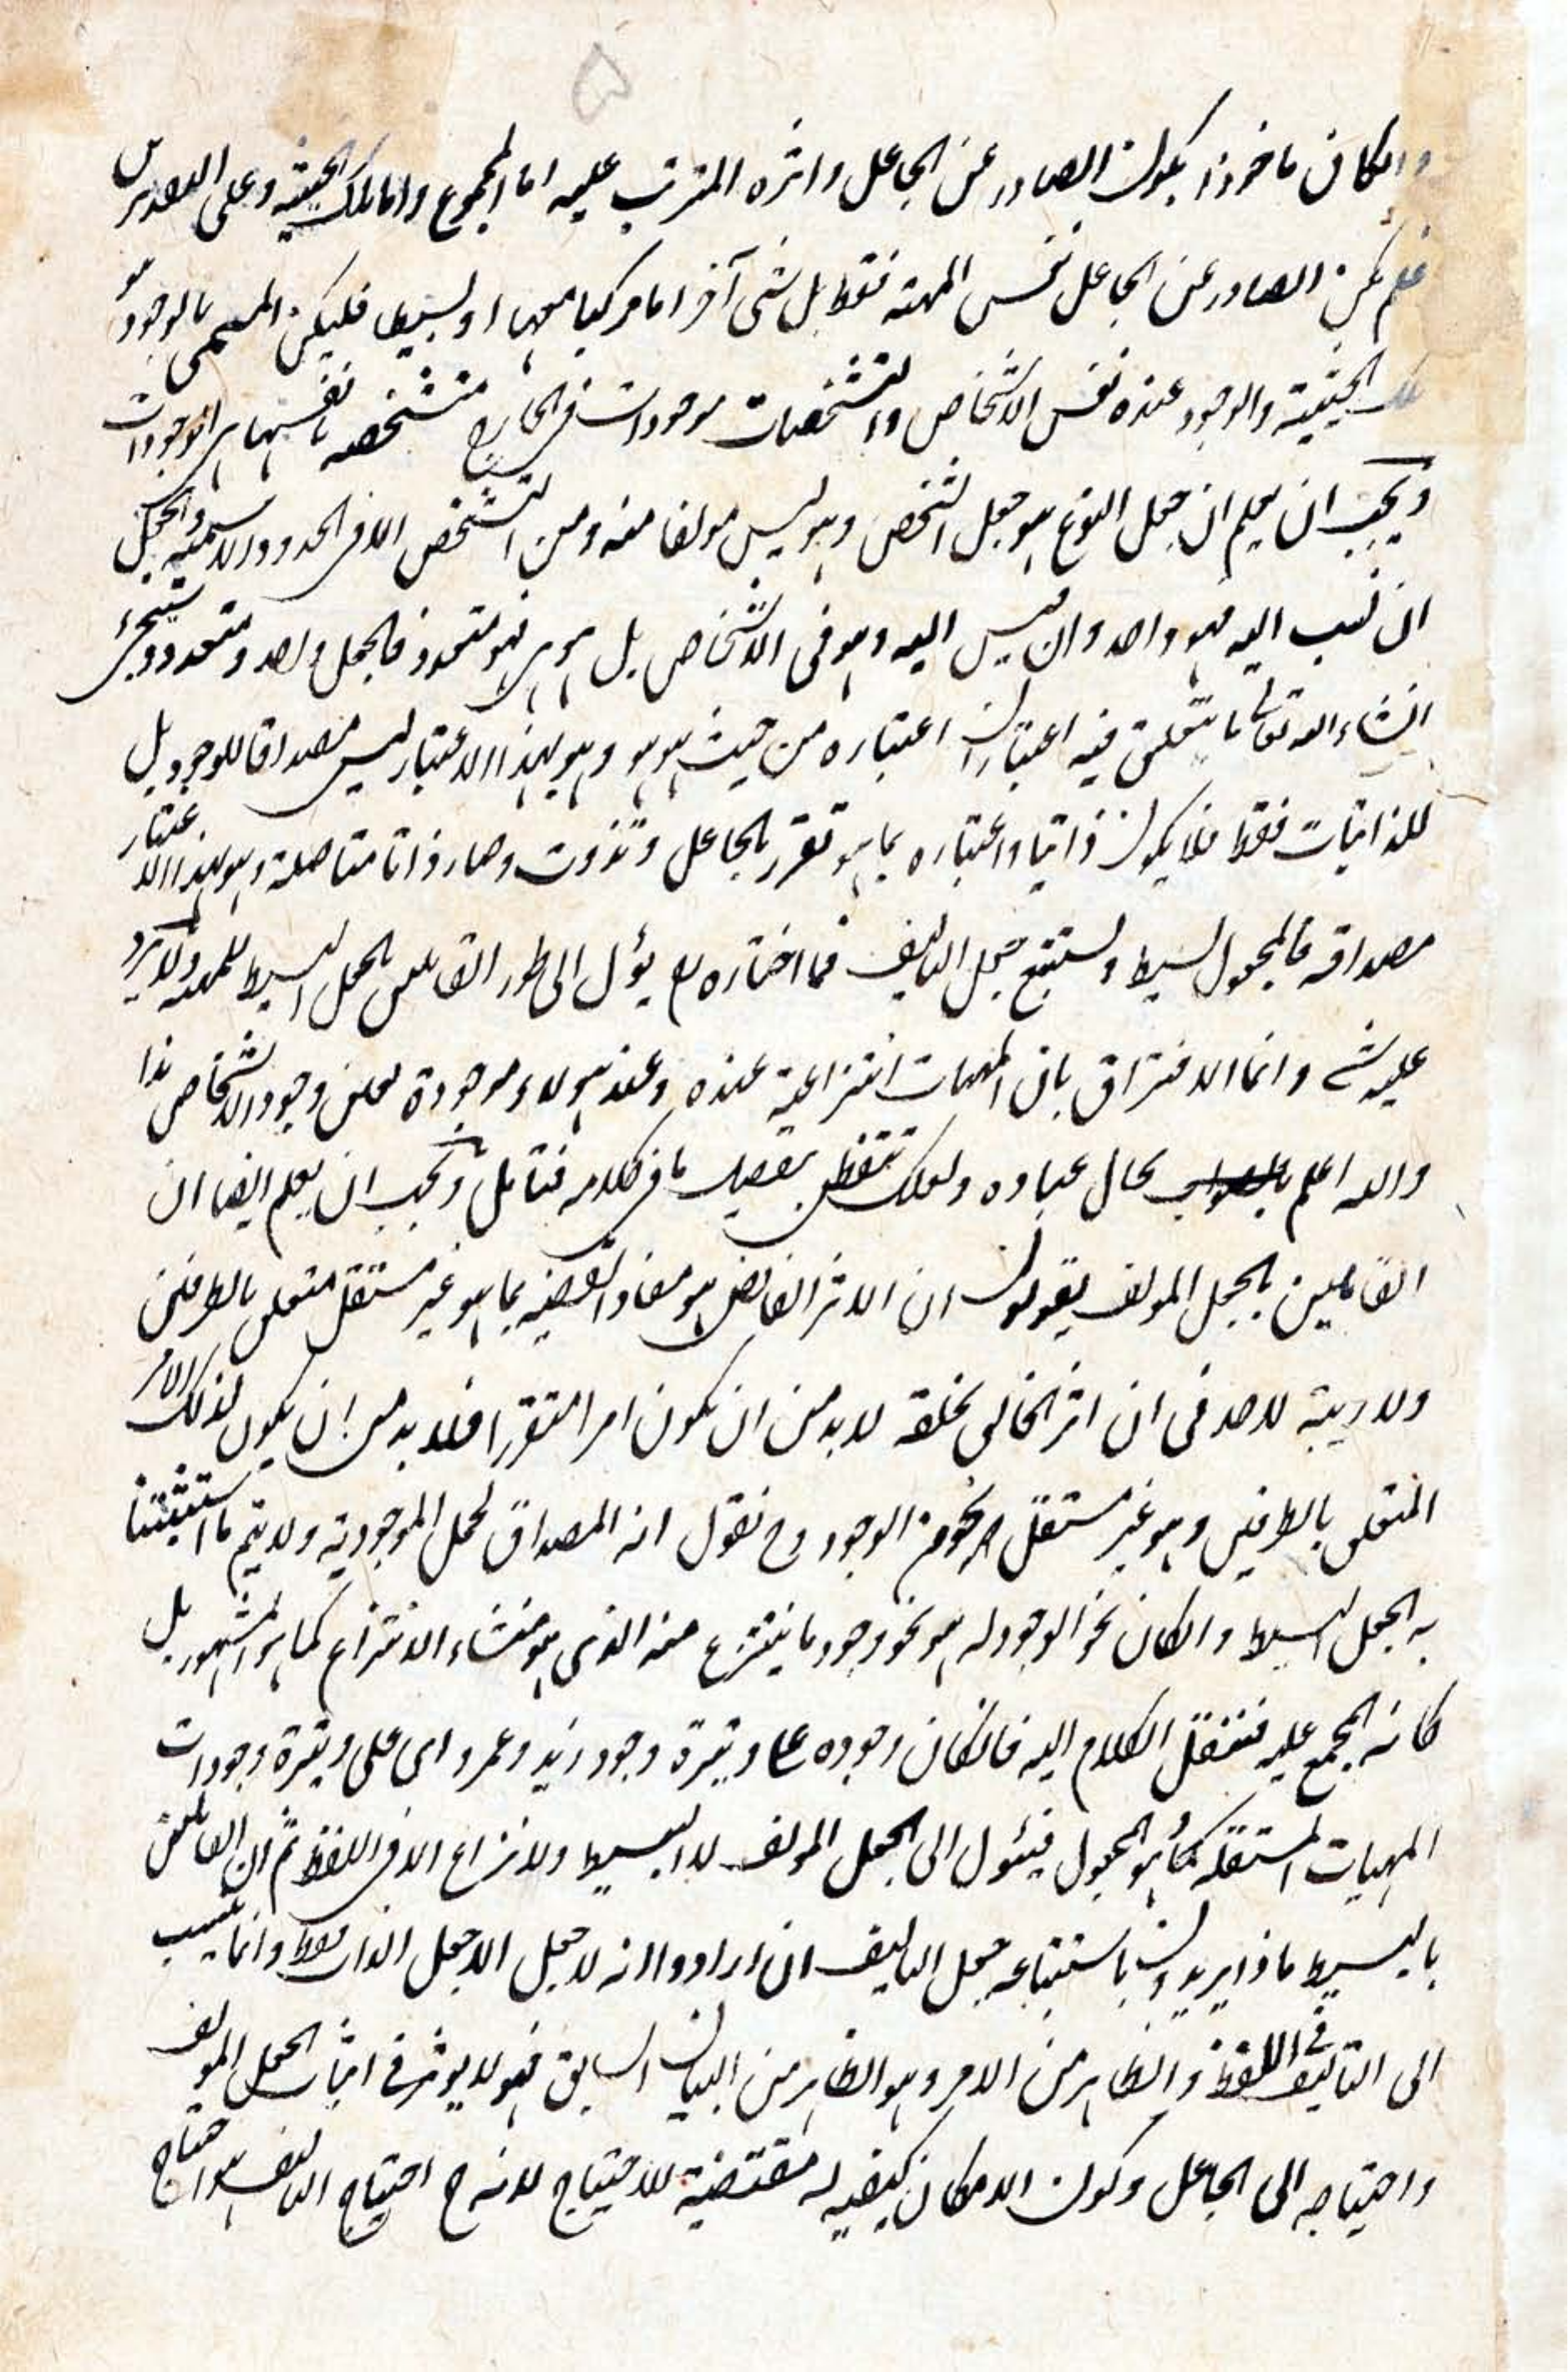 ۵
وان كان ماخوذا يكون الصادر عن الجاعل واثره المترتب عليه اما المجموع واما تلك الحيثية وعلى التقديرين
فلم يكن الصادر عن الجاعل نفس المهية فقط بل شى آخر اما مركبا معها او بسيطا فليكن المسمى بالوجود هو
تلك الحيثية والوجود عنده نفس الاشخاص والتشخصات موجودات فى الخارج متشخصة بانفسها هى الوجودات
ويجب ان يعلم ان جعل النوع هو جعل الشخص وهو ليس مولفا منه ومن التشخص الا فى الحدود الاسمية والجعل
ان نسب اليه فهو واحد وان ليس اليه وهو فى الاشخاص بل هو هى فهو متعدد فالجعل واحد ومتعدد وسيجئ
انشاء الله تعالى ما يتعلق فيه اعتباران اعتباره من حيث هو هو وهو بهذا الاعتبار ليس مصداقا للوجود بل
للذاتيات فقط فلا يكون ذاتيا واعتباره بما هو تقرر بالجاعل وتذوت وصار ذاتا متاصلة وهو بهذا الاعتبار
مصداقه فالمجعول بسيط ويستتبع جعل التاليف فما اختاره يؤل الى طور القائلين بالجعل البسيط للمهية ولا يرد
عليه شئ وانما الافتراق بان المهيات انتزاعية عنده وعند هولاء موجودة بعين وجود الاشخاص هذا
والله اعلم بحال عباده ولعلك تتفطن بتفصيل ما فى كلامه فتامل ويجب ان يعلم ايضا ان
القائلين بالجعل المولف يقولون ان الاثر الفائض هو مفاد القضية بما هو غير مستقل متعلق بالطرفين
ولا ريبة لاحد فى ان اثر الخالق بخلقه لا بد من ان يكون امرا متقررا فلا بد من ان يكون لذلك الامر
المتعلق بالطرفين وهو غير مستقل نحو من الوجود وح نقول انه المصداق لحمل الموجودية ولا يتم ما استثبتنا
به الجعل البسيط وان كان نحو الوجود له هو نحو وجود ما ينتزع منه الذى هو منشاء الانتزاع كما هو المشهور بل
كانه المجمع عليه فننقل الكلام اليه فانكان وجوده على وتيرة وجود زيد وعمرو اى على وتيرة وجودات
المهيات المستقلة كما هو المجعول فيئول الى الجعل المولف لا البسيط ولا نزاع الا فى اللفظ ثم ان القائلين
بالبسيط ماذا يريدون باستتباعه جعل التاليف ان ارادوا انه لا جعل الا جعل الذات فقط وانما ينسب
الى التاليف فى اللفظ والظاهر من الامر وهو الظاهر من البيان السابق فهو لا يوثر فى اثبات الجعل المولف
واحتياجه الى الجاعل وكون الامكان كيفية له مقتضية للاحتياج لانه ح احتياج التاليف هو احتياج